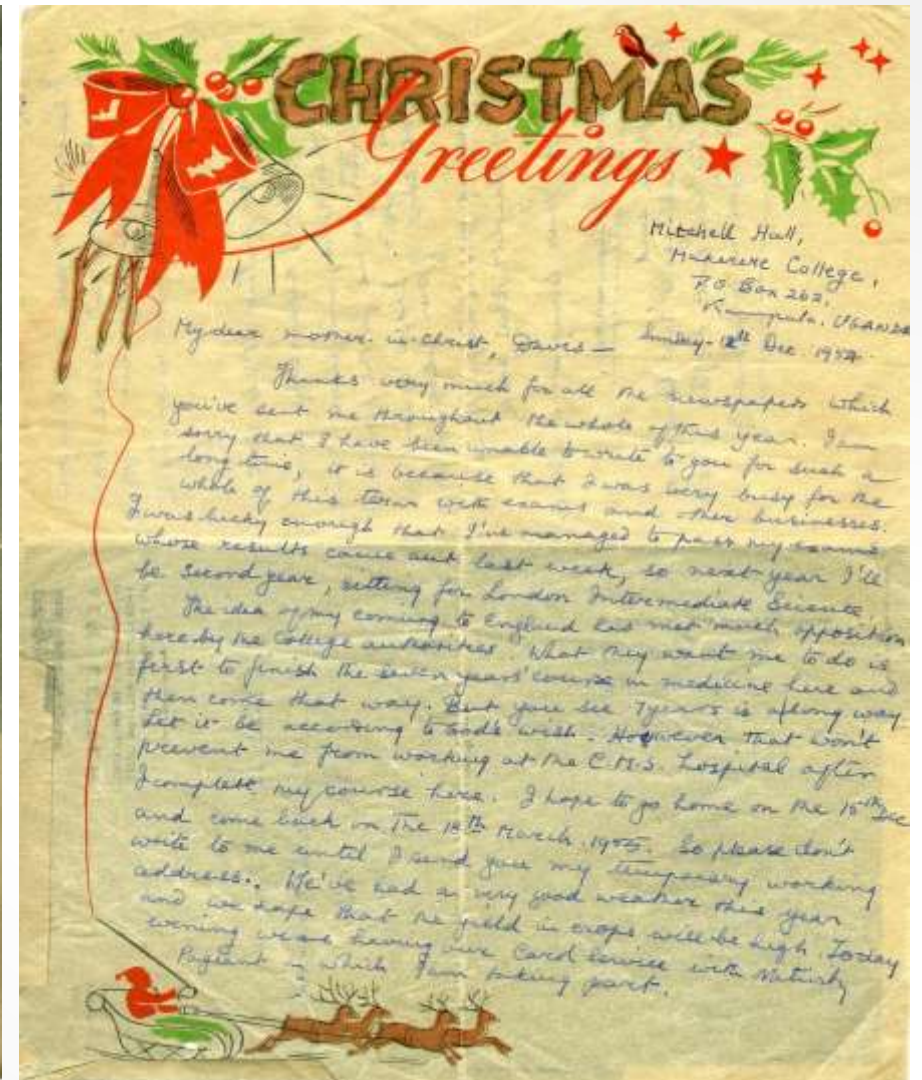 CHRISTMAS
Greetings
Mitchell Hall,
Makerere College,
P.O Box 262,
Kampala. UGANDA
My dear mother-in-Christ, Daves — Sunday-12th Dec. 1954.
Thanks very much for all the newspapers which
you've sent me throughout the whole of this year. I am
sorry that I have been unable to write to you for such a
long time, it is because that I was very busy for the
whole of this term with exams and other businesses.
I was lucky enough that I've managed to pass my exams
whose results came out last week, so next year I'll
be Second year, sitting for London Intermediate Science
The idea of my coming to England has met much opposition
here by the College authorities. What they want me to do is
first to finish the seven years' course in medicine here and
then come that way. But you see 7 years is a long way
Let it be according to God's wish. However that won't
prevent me from working at the C.M.S. hospital after
I complete my course here. I hope to go home on the 15th Dec
and come back on the 18th March 1955. So please don't
write to me until I send you my temporary working
address. We've had a very good weather this year
and we hope that the yield in crops will be high. Today
evening we are having our Carol service with Nativity
Pageant in which I am taking part.